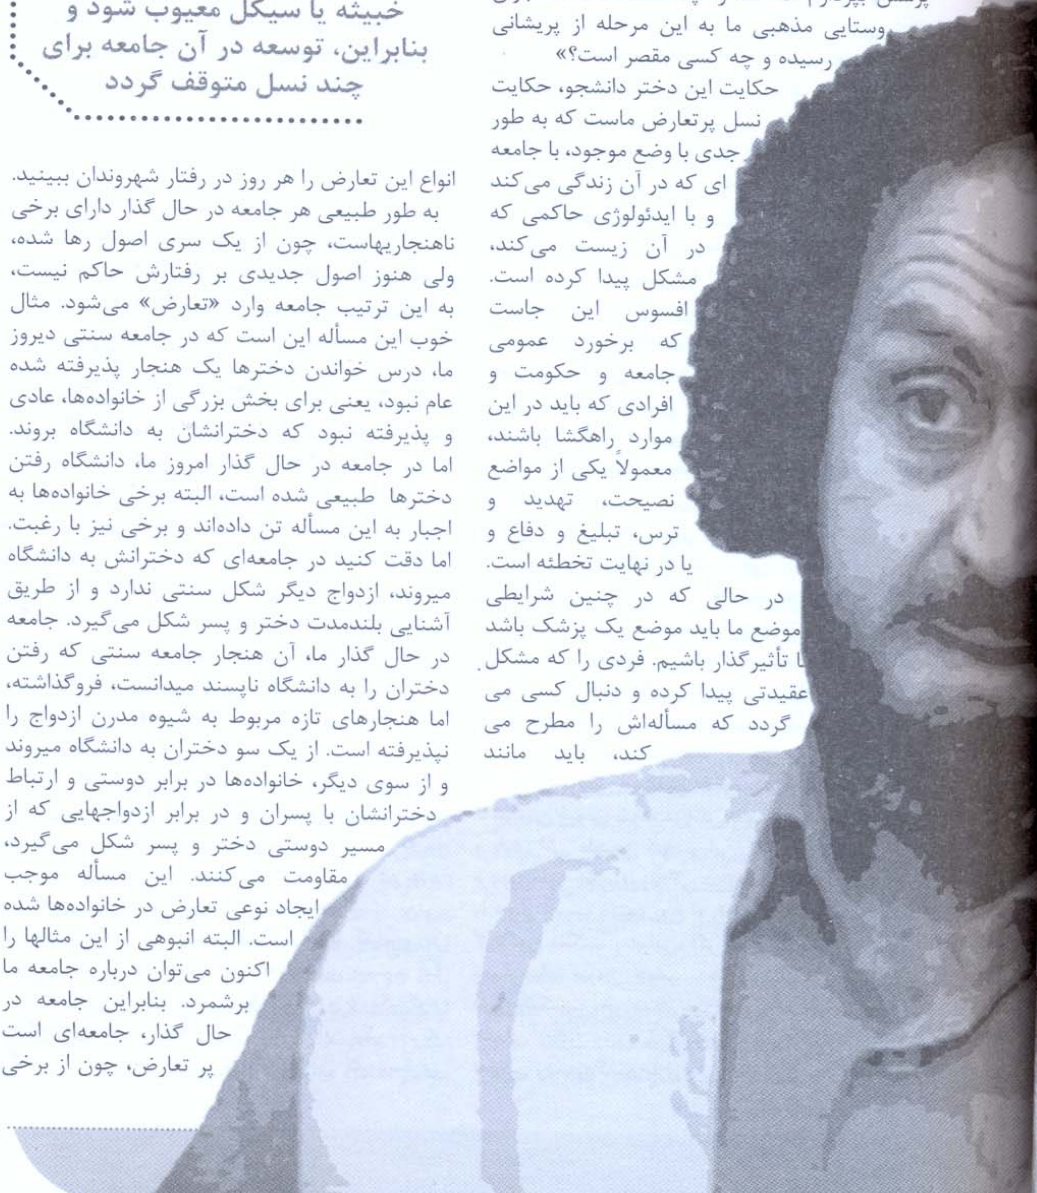 وستایی مذهبی ما به این مرحله از پریشانی
رسیده و چه کسی مقصر است؟»
حکایت این دختر دانشجو، حکایت
نسل پرتعارض ماست که به طور
جدی با وضع موجود، با جامعه
ای که در آن زندگی می‌کند
و با ایدئولوژی حاکمی که
در آن زیست می‌کند،
مشکل پیدا کرده است.
افسوس این جاست
که برخورد عمومی
جامعه و حکومت و
افرادی که باید در این
موارد راهگشا باشند،
معمولاً یکی از مواضع
نصیحت، تهدید و
ترس، تبلیغ و دفاع و
یا در نهایت تخطئه است.
در حالی که در چنین شرایطی
موضع ما باید موضع یک پزشک باشد
تا تأثیرگذار باشیم. فردی را که مشکل
عقیدتی پیدا کرده و دنبال کسی می
گردد که مسأله‌اش را مطرح می
کند، باید مانند
خبیثه یا سیکل معیوب شود و
بنابراین، توسعه در آن جامعه برای
چند نسل متوقف گردد
انواع این تعارض را هر روز در رفتار شهروندان ببینید.
به طور طبیعی هر جامعه در حال گذار دارای برخی
ناهنجاریهاست، چون از یک سری اصول رها شده،
ولی هنوز اصول جدیدی بر رفتارش حاکم نیست،
به این ترتیب جامعه وارد «تعارض» می‌شود. مثال
خوب این مسأله این است که در جامعه سنتی دیروز
ما، درس خواندن دخترها یک هنجار پذیرفته شده
عام نبود، یعنی برای بخش بزرگی از خانواده‌ها، عادی
و پذیرفته نبود که دخترانشان به دانشگاه بروند.
اما در جامعه در حال گذار امروز ما، دانشگاه رفتن
دخترها طبیعی شده است، البته برخی خانواده‌ها به
اجبار به این مسأله تن داده‌اند و برخی نیز با رغبت.
اما دقت کنید در جامعه‌ای که دخترانش به دانشگاه
میروند، ازدواج دیگر شکل سنتی ندارد و از طریق
آشنایی بلندمدت دختر و پسر شکل می‌گیرد. جامعه
در حال گذار ما، آن هنجار جامعه سنتی که رفتن
دختران را به دانشگاه ناپسند میدانست، فروگذاشته،
اما هنجارهای تازه مربوط به شیوه مدرن ازدواج را
نپذیرفته است. از یک سو دختران به دانشگاه میروند
و از سوی دیگر، خانواده‌ها در برابر دوستی و ارتباط
دخترانشان با پسران و در برابر ازدواجهایی که از
مسیر دوستی دختر و پسر شکل می‌گیرد،
مقاومت می‌کنند. این مسأله موجب
ایجاد نوعی تعارض در خانواده‌ها شده
است. البته انبوهی از این مثالها را
اکنون می‌توان درباره جامعه ما
برشمرد. بنابراین جامعه در
حال گذار، جامعه‌ای است
پر تعارض، چون از برخی